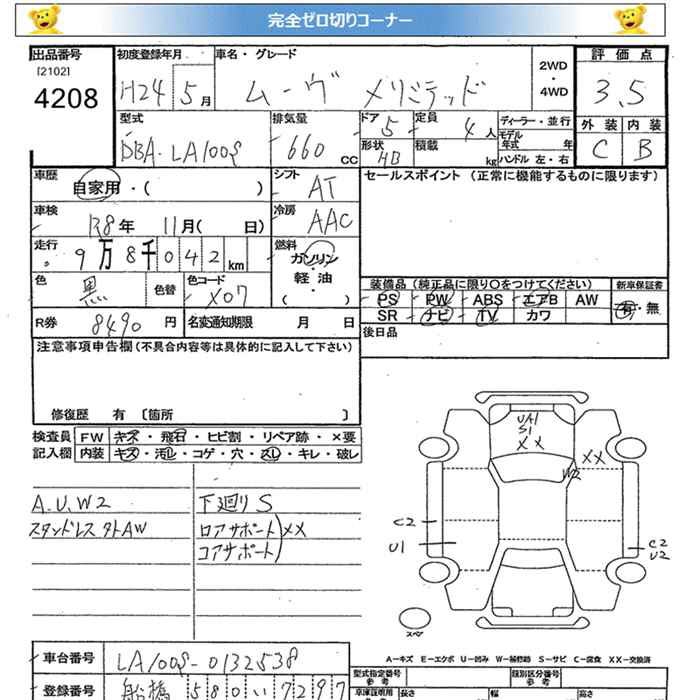 完全ゼロ切りコーナー
出品番号
[2102]
4208
初度登録年月
H24 5月
車名・グレード
ムーヴ メリミテッド
2WD
・
4WD
評価点
3.5
外装 内装
C B
型式
DBA-LA100S
排気量
660 cc
ドア 5
形状 HB
定員 4人
積載 kg
ディーラー・並行
モデル年式 年
ハンドル 左・右
車歴
自家用・( )
シフト AT
車検
R8年 11月( 日)
冷房 AAC
走行
9万8千042km
燃料
ガソリン
・
軽油
( )
色 黒 色替
色コード X07
R券 8490円
名変通知期限 月 日
セールスポイント (正常に機能するものに限ります)
装備品(純正品に限り○をつけてください)
PS PW ABS エアB AW
SR ナビ TV カワ
新車保証書
有・無
後日品
注意事項申告欄(不具合内容等は具体的に記入して下さい)
修復歴 有 〔箇所 〕
検査員記入欄
FW キズ・飛石・ヒビ割・リペア跡・×要
内装 キズ・汚レ・コゲ・穴・スレ・キレ・破レ
A.U.W2
スタッドレス 夕トAW
下廻りS
ロアサポート
コアサポート
XX
UA1
S1
XX
XX
W2
C2
U1
C2
U2
スペア
A-キズ E-エクボ U-凹み W-補修跡 S-サビ C-腐食 XX-交換済
車台番号 LA100S-0132538
登録番号 船橋 580 い 7297
型式指定番号
参考
類別区分番号
参考
車庫証明用
参考
長さ 幅 高さ